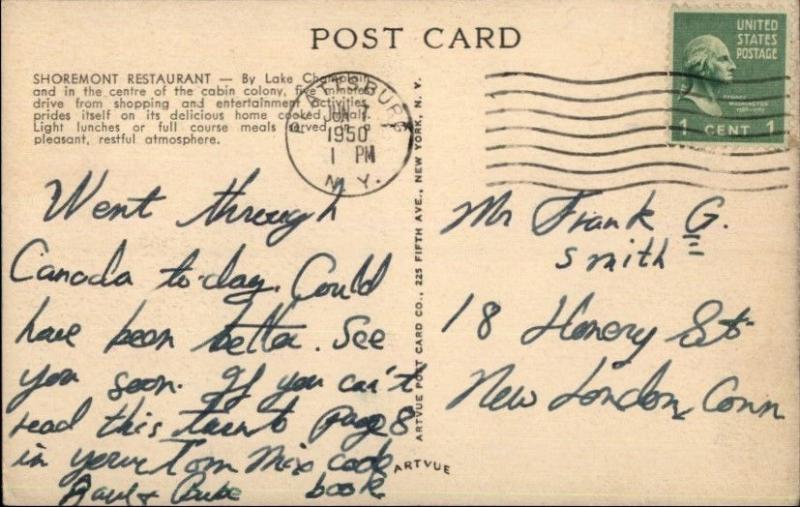 POST CARD
SHOREMONT RESTAURANT — By Lake Champlain
and in the centre of the cabin colony, five minutes
drive from shopping and entertainment activities
prides itself on its delicious home cooked meals.
Light lunches or full course meals served in a
pleasant, restful atmosphere.
PLATTSBURG
JUN 7
1950
1 PM
N. Y.
UNITED
STATES
POSTAGE
WASHINGTON
1 CENT 1
Went through
Canada to-day. Could
have been better. See
you soon. If you can't
read this turn to page 8
in your Tom Mix code
book
Paul &
ARTVUE POST CARD CO., 225 FIFTH AVE., NEW YORK, N. Y.
ARTVUE
Mr Frank G.
Smith
18 Henery St.
New London, Conn